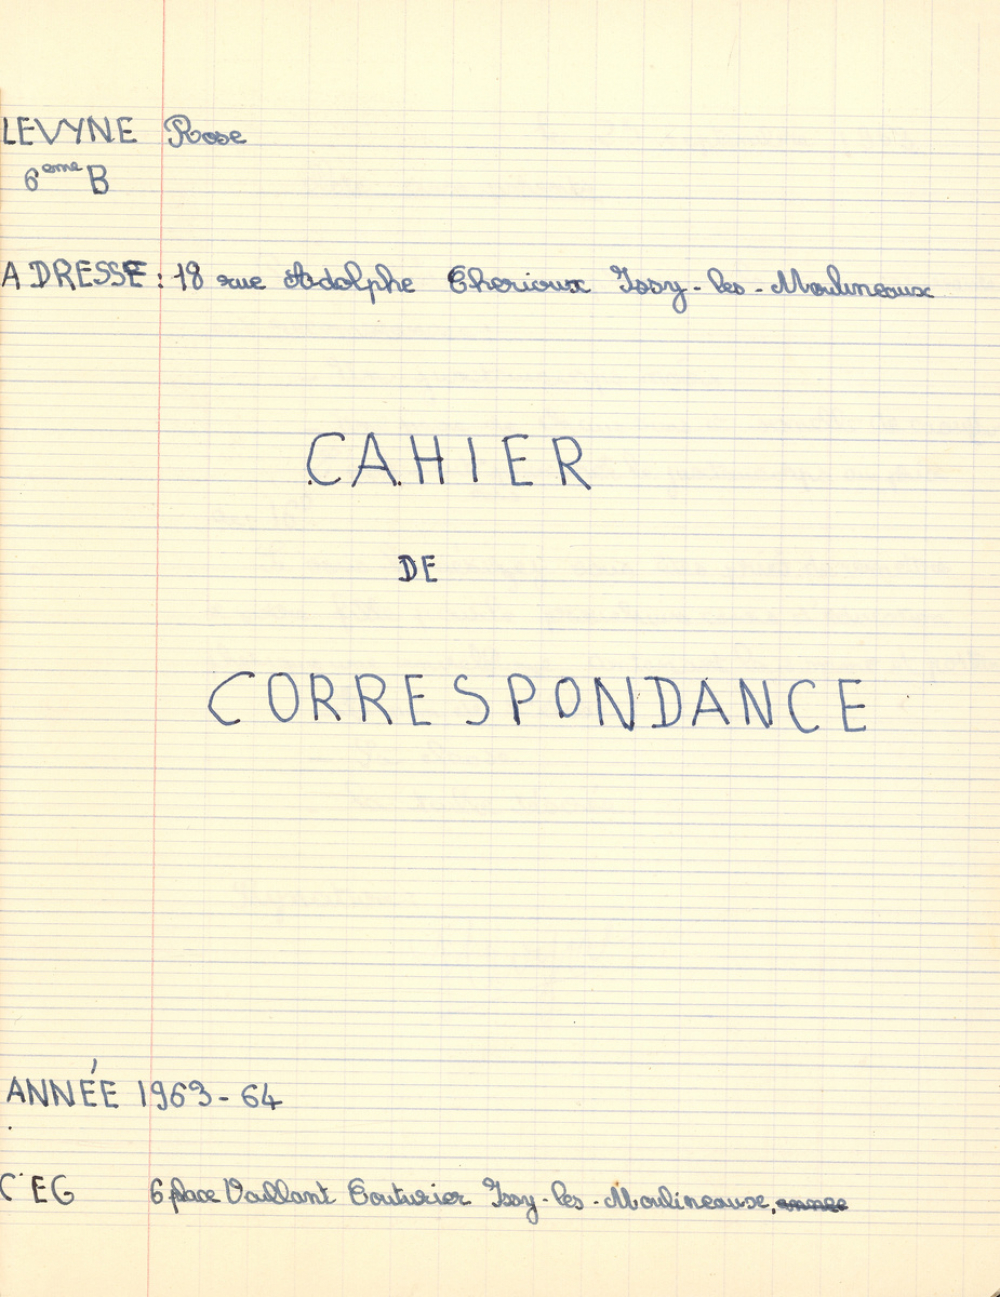 LEVYNE Rose
6eme B
ADRESSE : 18 rue Adolphe Cherioux Issy-les-Moulineaux
CAHIER
DE
CORRESPONDANCE
ANNÉE 1963-64
CEG 6 place Vaillant Couturier Issy-les-Moulineaux,